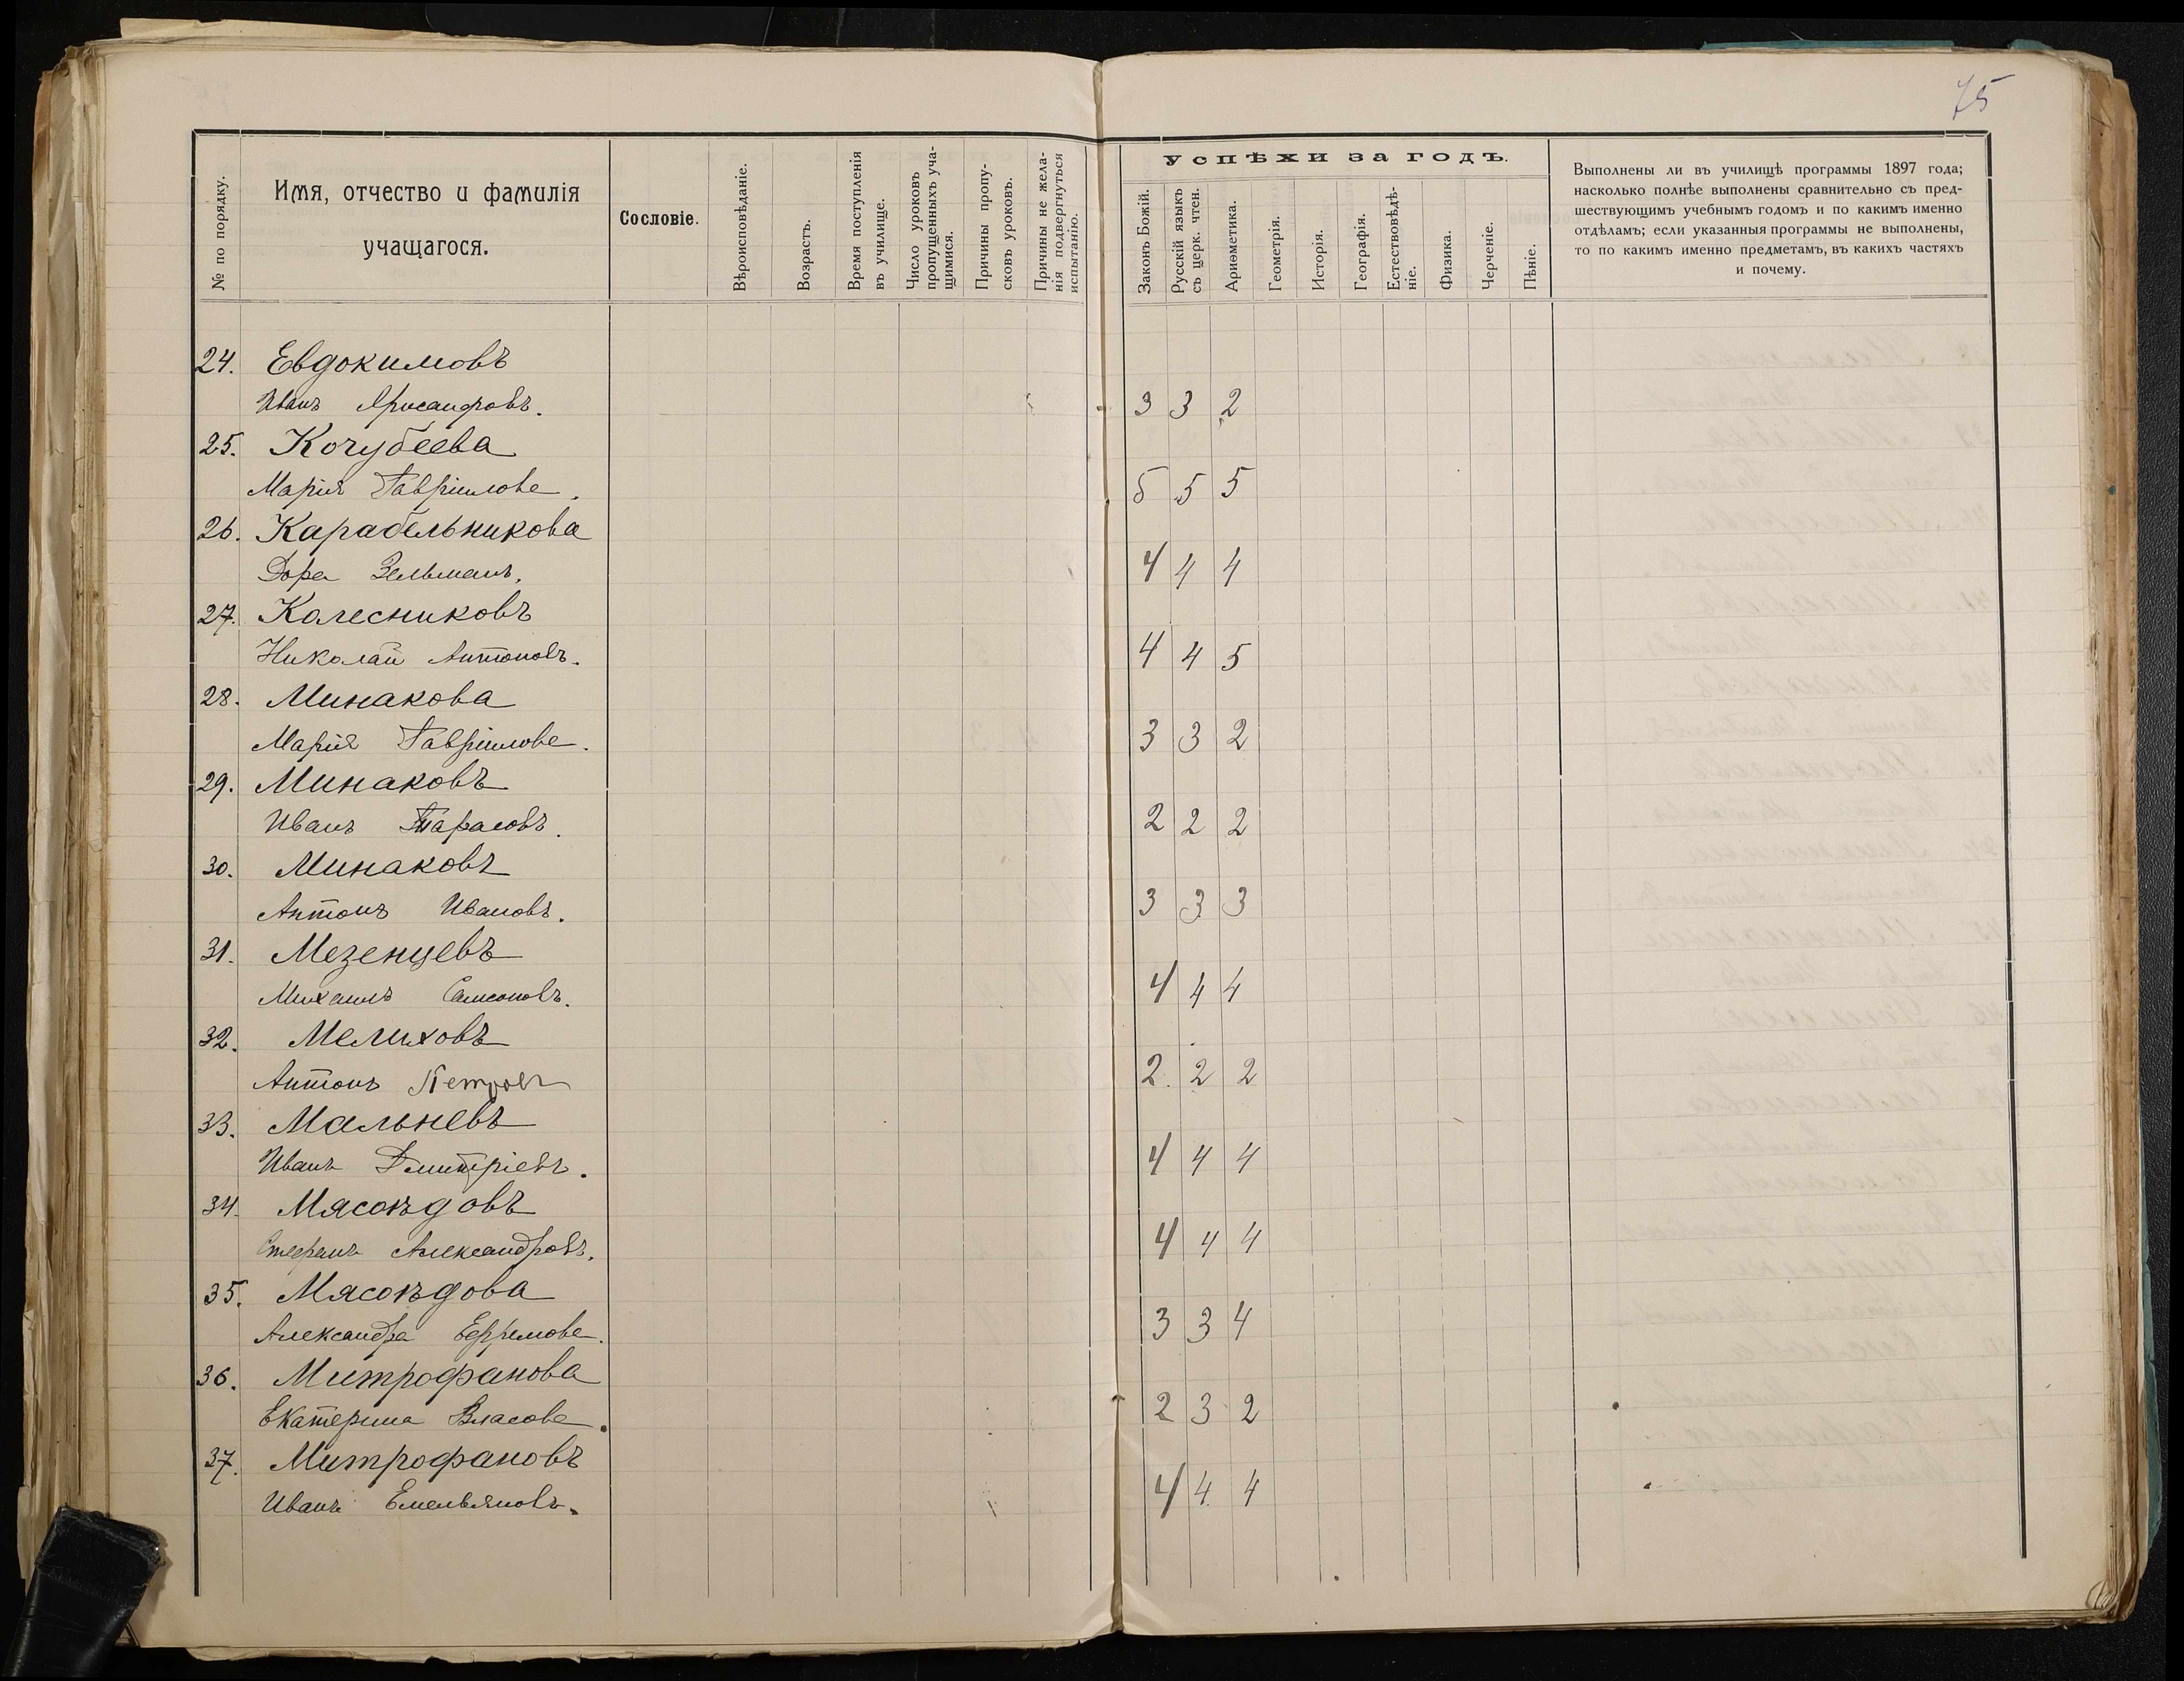 75
№ по порядку.
Имя, отчество и фамилія
учащагося.
Сословіе.
Вѣроисповѣданіе.
Возрастъ.
Время поступленія
въ училище.
Число уроковъ
пропущенныхъ уча-
щимися.
Причины пропу-
сковъ уроковъ.
Причины не жела-
нія подвергнуться
испытанію.
Успѣхи за годъ.
Законъ Божій.
Русскій языкъ
съ церк. чтен.
Ариѳметика.
Геометрія.
Исторія.
Географія.
Естествовѣдѣ-
ніе.
Физика.
Черченіе.
Пѣніе.
Выполнены ли въ училищѣ программы 1897 года;
насколько полнѣе выполнены сравнительно съ пред-
шествующимъ учебнымъ годомъ и по какимъ именно
отдѣламъ; если указанныя программы не выполнены,
то по какимъ именно предметамъ, въ какихъ частяхъ
и почему.
24. Евдокимовъ
Иванъ 3 3 2
25. Кочубеева
Марія Гавріилова. 5 5 5
26. Карабельникова
Дора Зельман. 4 4 4
27. Колесниковъ
Николай Антоновъ. 4 4 5
28. Минакова
Марія Гавріилова. 3 3 2
29. Минаковъ
Иванъ Тарасовъ. 2 2 2
30. Минаковъ
Антонъ Ивановъ. 3 3 3
31. Мезенцевъ
Михаилъ Самсоновъ. 4 4 4
32. Мелиховъ
Антонъ Петровъ 2. 2 2
33. Мальневъ
Иванъ Дмитріевъ. 4 4 4
34. Мясоѣдовъ
Стефанъ Александровъ. 4 4 4
35. Мясоѣдова
Александра Ефремова. 3 3 4
36. Митрофанова
Екатерина Власова. 2 3 2
37. Митрофановъ
Иванъ Емельяновъ. 4 4. 4